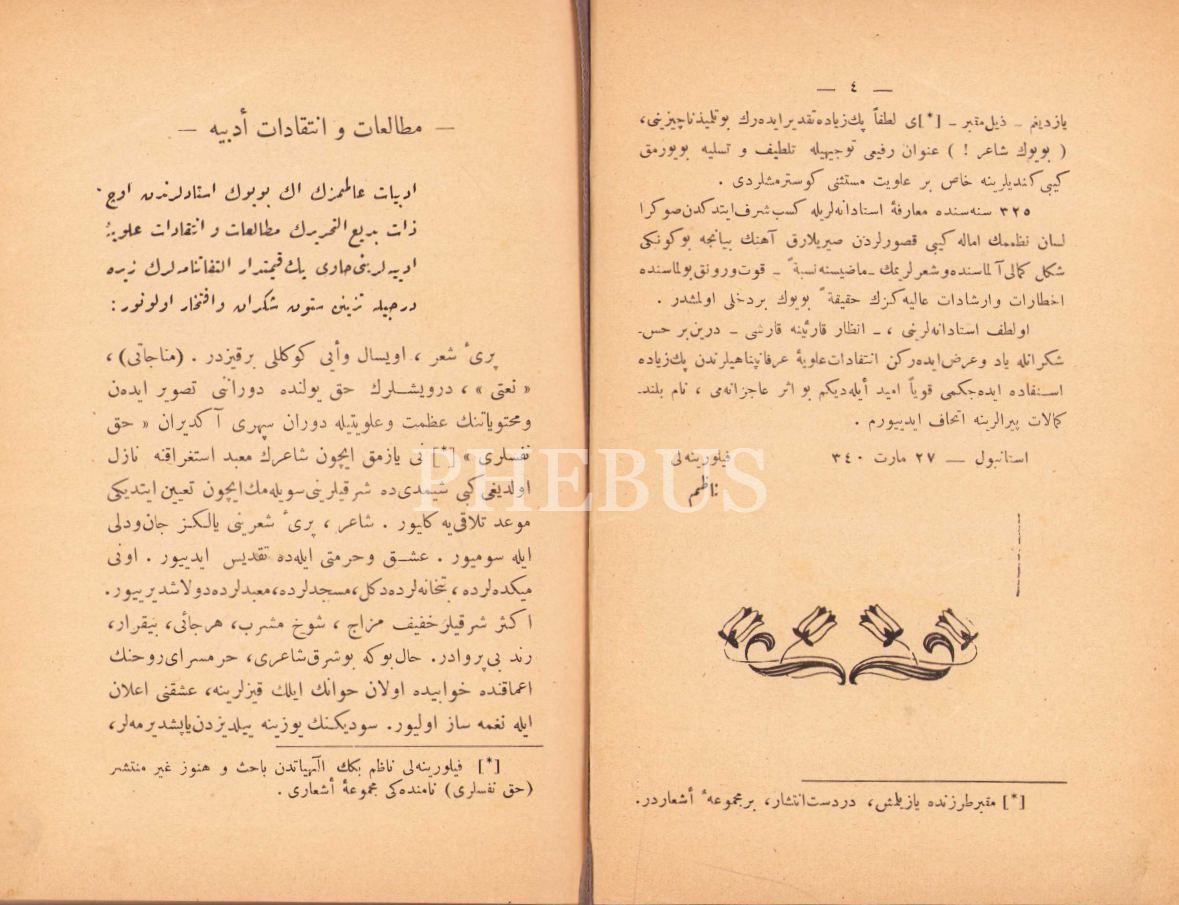 — ٤ —
يازديغم ـ ذيل مقبر ـ [*]ى لطفاً پك زياده تقدير ايده رك بو تلميذ ناچيزينى،
( بويوك شاعر ! ) عنوان رفيعى توجيهيله تلطيف و تسليه بويورمق
كيبى كنديلرينه خاص بر علويت مستثنى كوسترمشلردى .
٣٢٥ سنه سنده معارفهٔ استادانه لريله كسب شرف ايتدكدن صوكرا
لسان نظممك اماله كيبى قصورلردن صيريلارق آهنك بيانجه بوكونكى
شكل كمالى آلماسنده و شعرلريمك ـ ماضيسنه نسبةً ـ قوت و رونق بولماسنده
اخطارات وارشادات عاليه كزك حقيقةً بويوك بر دخلى اولمشدر .
او لطف استادانه لرينى ، ـ انظار قارئينه قارشى ـ درين بر حس ـ
شكرانله ياد و عرض ايده ركن انتقادات علويهٔ عرفانپناهيلرندن پك زياده
استفاده ايده جكمى قوياً اميد أيله ديكم بو اثر عاجزانه مى ، نام بلند ـ
كمالات پيرالرينه اتحاف ايدييورم .
استانبول — ٢٧ مارت ٣٤٠
فيلورينه لى
ناظم
[*] مقبر طرزنده يازيلمش، دردست انتشار، بر مجموعهٔ أشعاردر.
— مطالعات و انتقادات أدبيه —
ادبيات عاطمزك اك بويوك استادلرندن اوچ
ذات بديع التحريرك مطالعات و انتقادات علويهٔ
ادبيه لرينى حاوى پك قيمتدار التفاتنامه لرك زيره
درجيله تزيين ستون شكران و افتخار اولونور :
پرىٔ شعر ، اويسال وأبى كوكللى بر قيزدر . (مناجاتى) ،
« نعتى » ، درويشلرك حق يولنده دوراننى تصوير ايدەن
ومحتوياتنك عظمت وعلويتيله دوران سپهرى آكديران « حق
نفسلرى » [*] نى يازمق ايچون شاعرك معبد استغراقنه نازل
اولديغى كبى شيمدى ده شرقيلرينى سويله مك ايچون تعيين ايتديكى
موعد تلاقى يه كليور . شاعر ، پرىٔ شعرينى يالكز جان و دلى
ايله سوميور . عشق وحرمتى ايله ده تقديس ايدييور . اونى
ميكده لرده ، بتخانه لرده دكل، مسجدلرده، معبدلرده دولاشديرييور.
اكثر شرقيلر خفيف مزاج ، شوخ مشرب، هرجائى، بيقرار،
رند بى پروادر. حال بوكه بو شرق شاعرى، حرمسراى روحنك
اعماقنده خوابيده اولان حوانك ايلك قيزلرينه، عشقنى اعلان
ايله نغمه ساز اوليور. سوديكنك يوزينه ييلديزدن ياپشديرمه لر،
[*] فيلورينه لى ناظم بكك الٓهياتدن باحث و هنوز غير منتشر
(حق نفسلرى) نامنده كى مجموعهٔ أشعارى .
PHEBUS